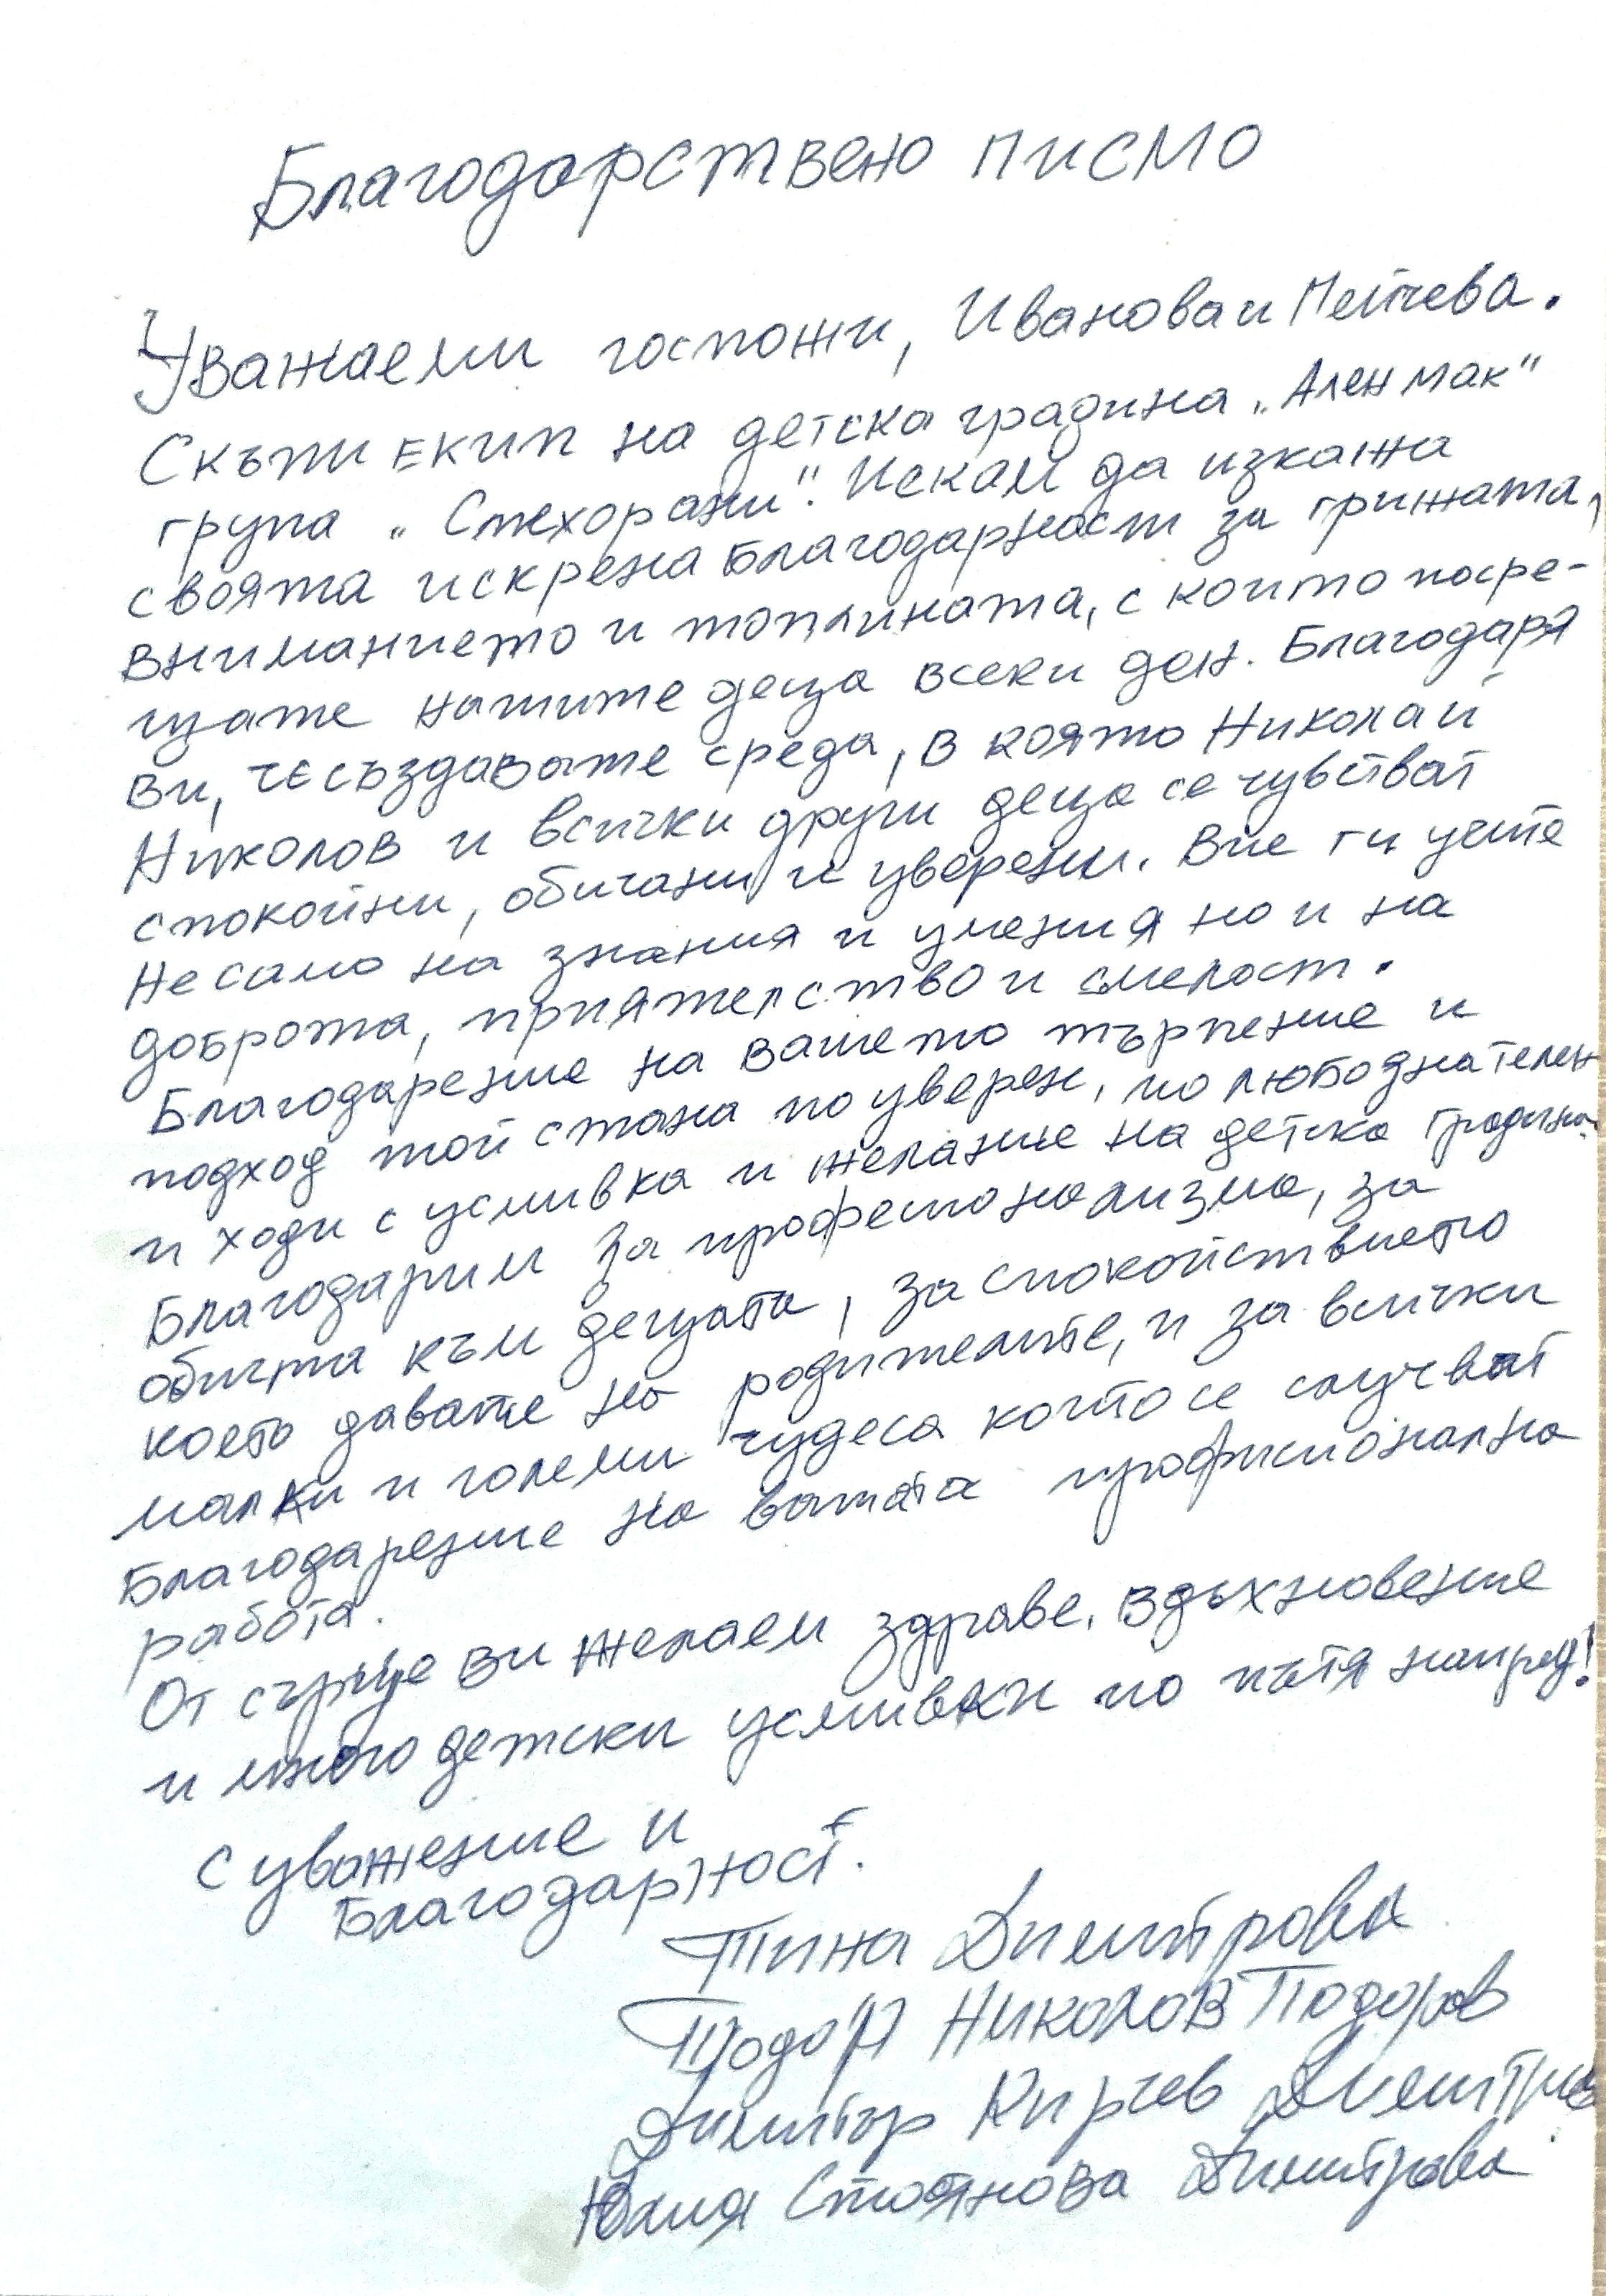 Благодарствено писмо
Уважаеми госпожи, Иванова и Пейчева.
Скъпи екип на детска градина „Ален мак"
група „Смехорани". Искам да изкажа
своята искрена благодарност за грижата,
вниманието и топлината, с които посре-
щате нашите деца всеки ден. Благодаря
Ви, че създавате среда, в която Николай
Николов и всички други деца се чувстват
спокойни, обичани и уверени. Вие ги учите
не само на знания и умения но и на
доброта, приятелство и смелост.
Благодарение на вашето търпение и
подход той стана по уверен, по любознателен
и ходи с усмивка и желание на детска градина.
Благодарим за професионализма, за
обичта към децата, за спокойствието
което давате на родителите, и за всички
малки и големи чудеса които се случват
Благодарение на вашата професионална
работа.
От сърце ви желаем здраве, вдъхновение
и много детски усмивки по пътя напред!
С уважение и
Благодарност.
Тина Димитрова
Тодор Николов Тодоров
Димитър Кирчев Димитров
Юлия Стоянова Димитрова